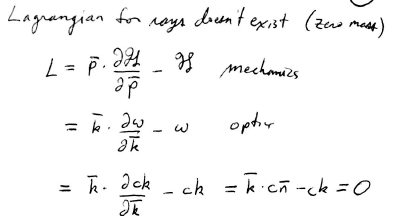 Lagrangian for rays doesn't exist (zero mass)
L = p̄ · ∂ℋ/∂p̄ − ℋ mechanics
= k̄ · ∂ω/∂k̄ − ω optics
= k̄ · ∂ck/∂k̄ − ck = k̄ · cn̄ − ck = 0